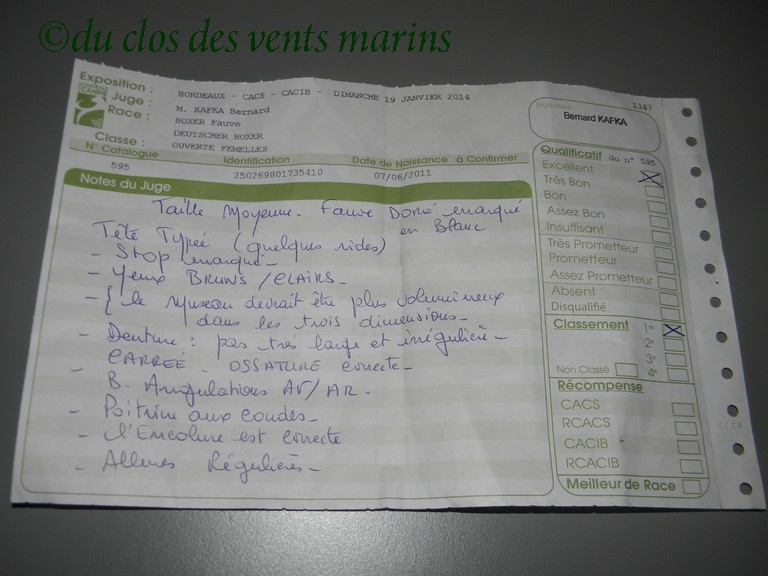 ©du clos des vents marins
Exposition : BORDEAUX - CACS - CACIB - DIMANCHE 19 JANVIER 2014
Juge : M. KAFKA Bernard
Race : BOXER Fauve
DEUTSCHER BOXER
Classe : OUVERTE FEMELLES
N° Catalogue Identification Date de Naissance à Confirmer
595 250269801735410 07/06/2011
Notes du Juge
Taille Moyenne - Fauve Doré marqué
en Blanc
Tête Typée (quelques rides)
- Stop marqué -
- Yeux BRUNS / CLAIRS -
- { le museau devrait être plus volumineux
dans les trois dimensions -
- Denture : pas très large et irrégulière -
- CARRÉE - OSSATURE correcte -
- B. Angulations AV/AR -
- Poitrine aux coudes -
- L'Encolure est correcte
- Allures Régulières -
Signature 1347
Bernard KAFKA
Qualificatif du n° 595
Excellent
Très Bon
Bon
Assez Bon
Insuffisant
Très Prometteur
Prometteur
Assez Prometteur
Absent
Disqualifié
Classement 1er
2e
3e
Non Classé 4e
Récompense
CACS
RCACS
CACIB
RCACIB
Meilleur de Race